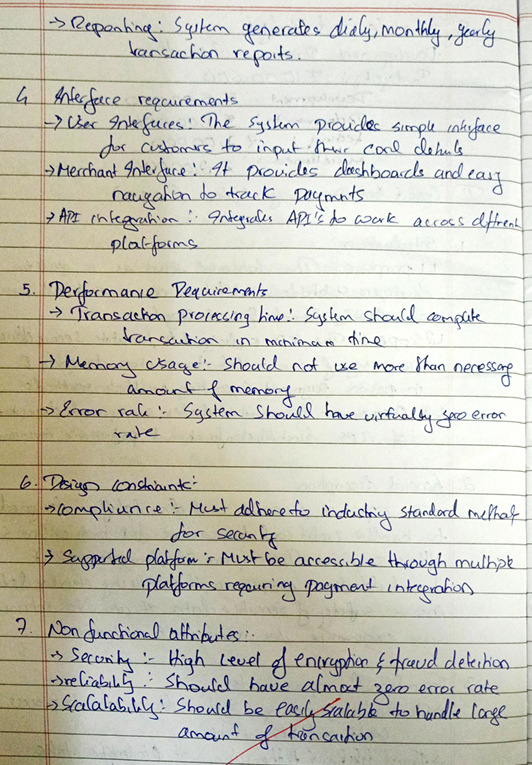 → Reporting: System generates dialy, monthly, yearly
transaction reports.
4 Interface requirements
→ User Interfaces: The system provides simple interface
for customers to input their card details
→ Merchant Interface: It provides dashboards and easy
navigation to track payments
→ API integration :- Integrates API's to work across diffrent
platforms
5. Performance Requirements
→ Transaction processing time: System should compute
transaction in minimum time
→ Memory usage:- Should not use more than necessary
amount of memory
→ Error rate:- System should have virtually zero error
rate
6. Design constraints:-
→ compliance :- Must adhere to industry standard methods
for security
→ Supported platform :- Must be accessible through multiple
platforms requring payment integration
7. Non functional attributes:-
→ Security :- High level of encryption & fraud detection
→ reliability :- Should have almost zero error rate
→ Scalatability: Should be easily scalable to handle large
amount of transaction